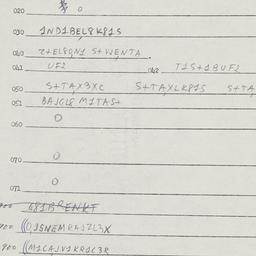 020 0
030 1ND1BEL8K81S
040 2+EL8QN1 S+WENTA.
041 UF2 042 T1S+1BUF2
050 S+TAX3XC S+TAXLK81S S+TA
051 BAJGL8 M1TAS+
060 0
070 0
071 0
900 681BRENKT
900 ((OJSNEMRA1ZL3X
900 ((M1CAJV1KR1C3R